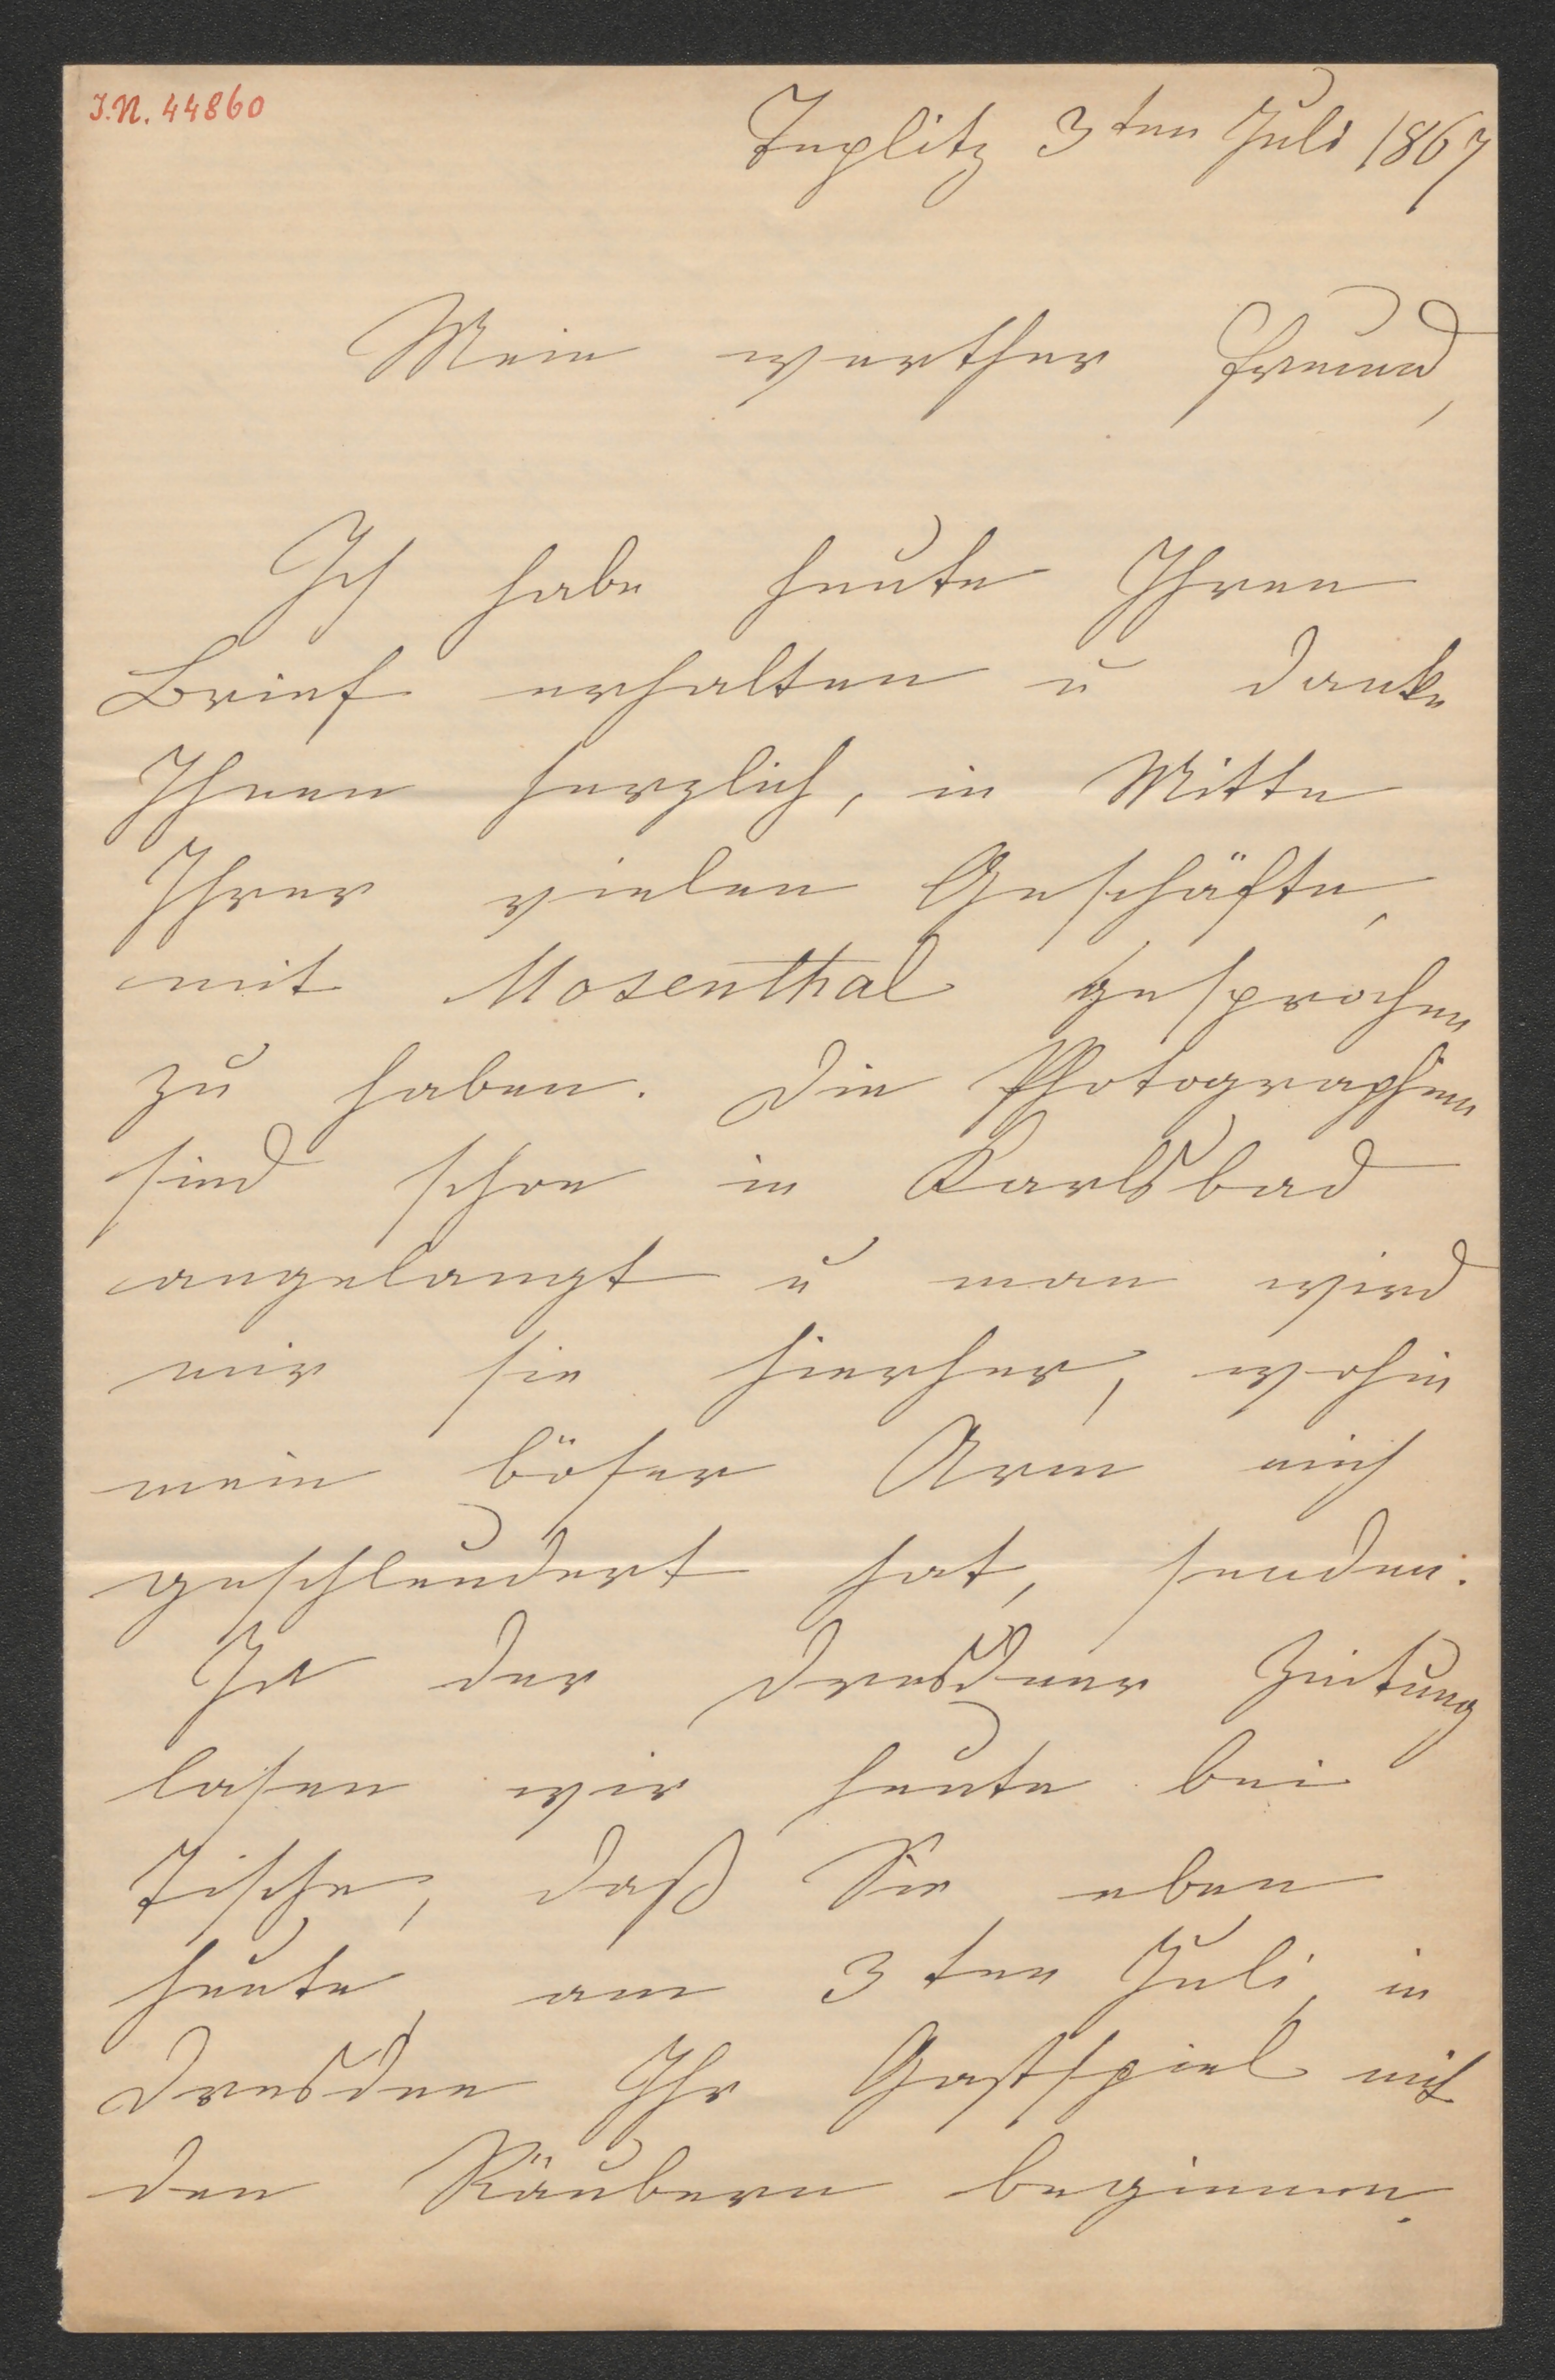 I.N. 44860
Teplitz 3ten Juli 1867
Mein werther Freund,
Ich habe heute Ihren
Brief erhalten u danke
Ihnen herzlich, in Mitte
Ihrer vielen Geschäfte,
mit Mosenthal gesprochen
zu haben. Die Photographien
sind schon in Karlsbad
angelangt u man wird
mir sie hierher, wohin
mein böser Arm mich
geschleudert hat, senden.
In der Dresdner Zeitung
lasen wir heute bei
Tische, daß Sie eben
heute, am 3ten Juli, in
Dresden Ihr Gastspiel mit
den Räubern beginnen.